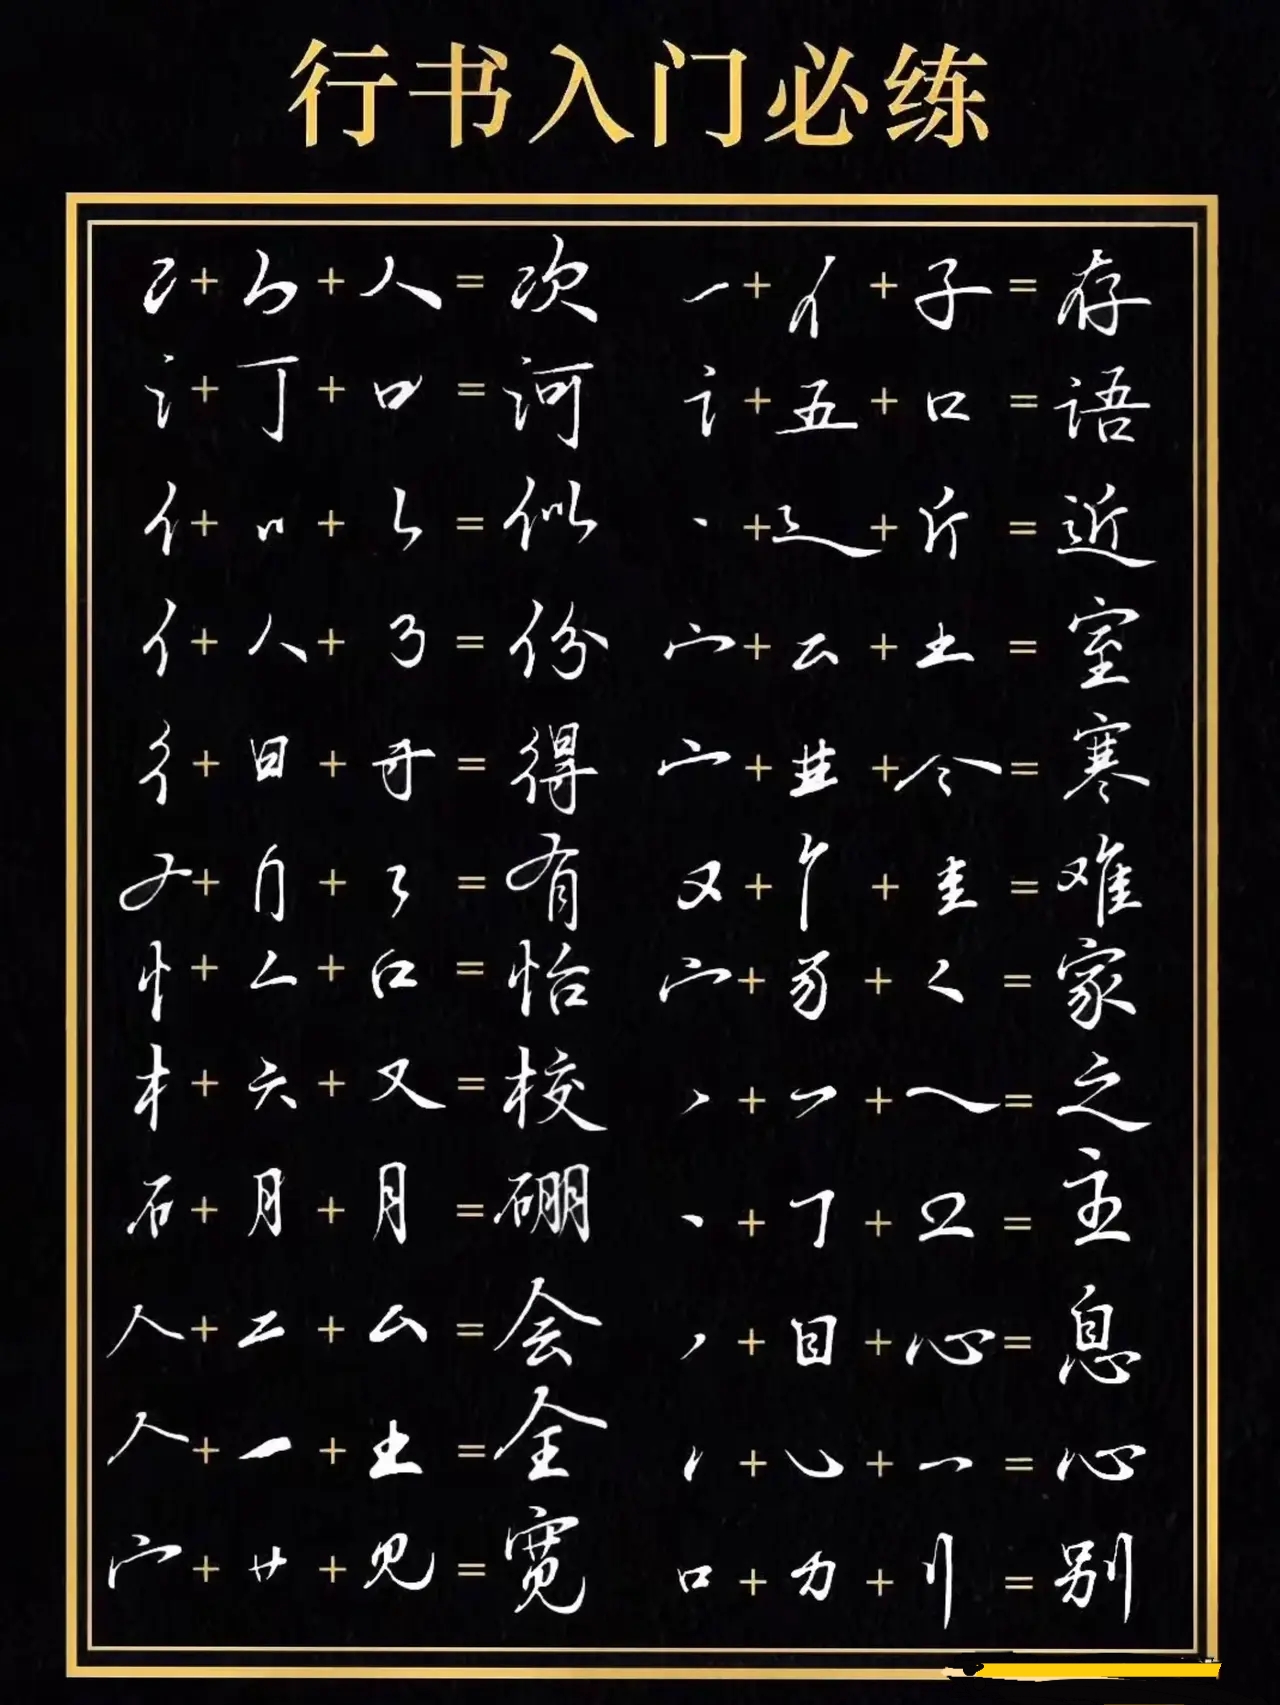 行书入门必练
冫+𠂊+人=次 一+亻+子=存
氵+丁+口=河 讠+五+口=语
亻+ +=似 丶+辶+斤=近
亻+人+=份 宀+云+土=室
彳+日+=得 宀++=寒
++=有 又++=难
忄+厶+口=怡 宀++=家
木+六+又=校 ++=之
石+月+月=硼 丶++=主
人+二+厶=会 丿+目+心=息
人+一+土=全 ++=心
宀+艹+见=宽 口+力+刂=别